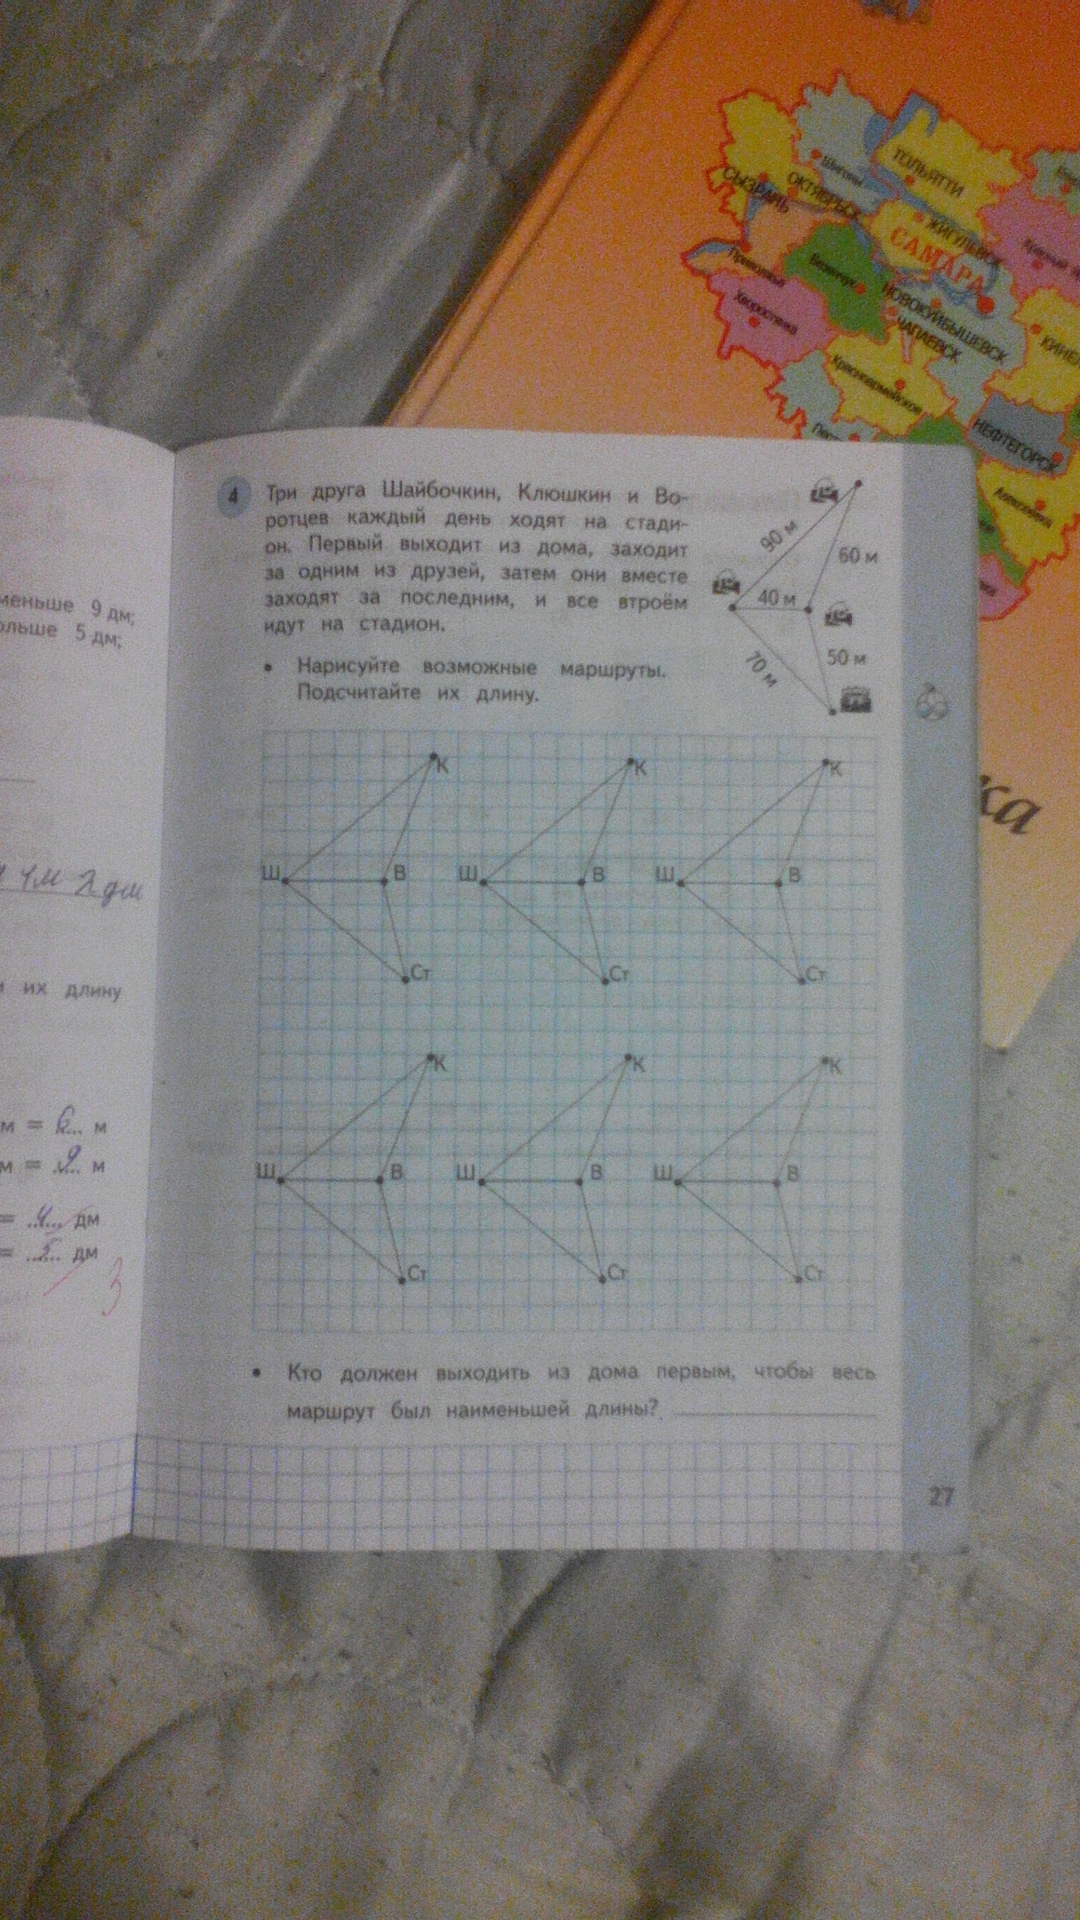 ТОЛЬЯТТИ
Шигоны
СЫЗРАНЬ
ОКТЯБРЬСК
ЖИГУЛЬЕВСК
САМАРА
Приволжье
Безенчук
НОВОКУЙБЫШЕВСК
Хворостянка
ЧАПАЕВСК
Красноармейское
НЕФТЕГОРСК
Алексеевка
ка
меньше 9 дм;
ольше 5 дм;
4м 2дм
их длину
м = 6... м
м = ..9.. м
= ..4... дм
= ..5.. дм
3
4
Три друга Шайбочкин, Клюшкин и Во-
ротцев каждый день ходят на стади-
он. Первый выходит из дома, заходит
за одним из друзей, затем они вместе
заходят за последним, и все втроём
идут на стадион.
90 м
60 м
40 м
50 м
70 м
• Нарисуйте возможные маршруты.
Подсчитайте их длину.
К К К
Ш В Ш В Ш В
Ст Ст Ст
К К К
Ш В Ш В Ш В
Ст Ст Ст
• Кто должен выходить из дома первым, чтобы весь
маршрут был наименьшей длины?
27